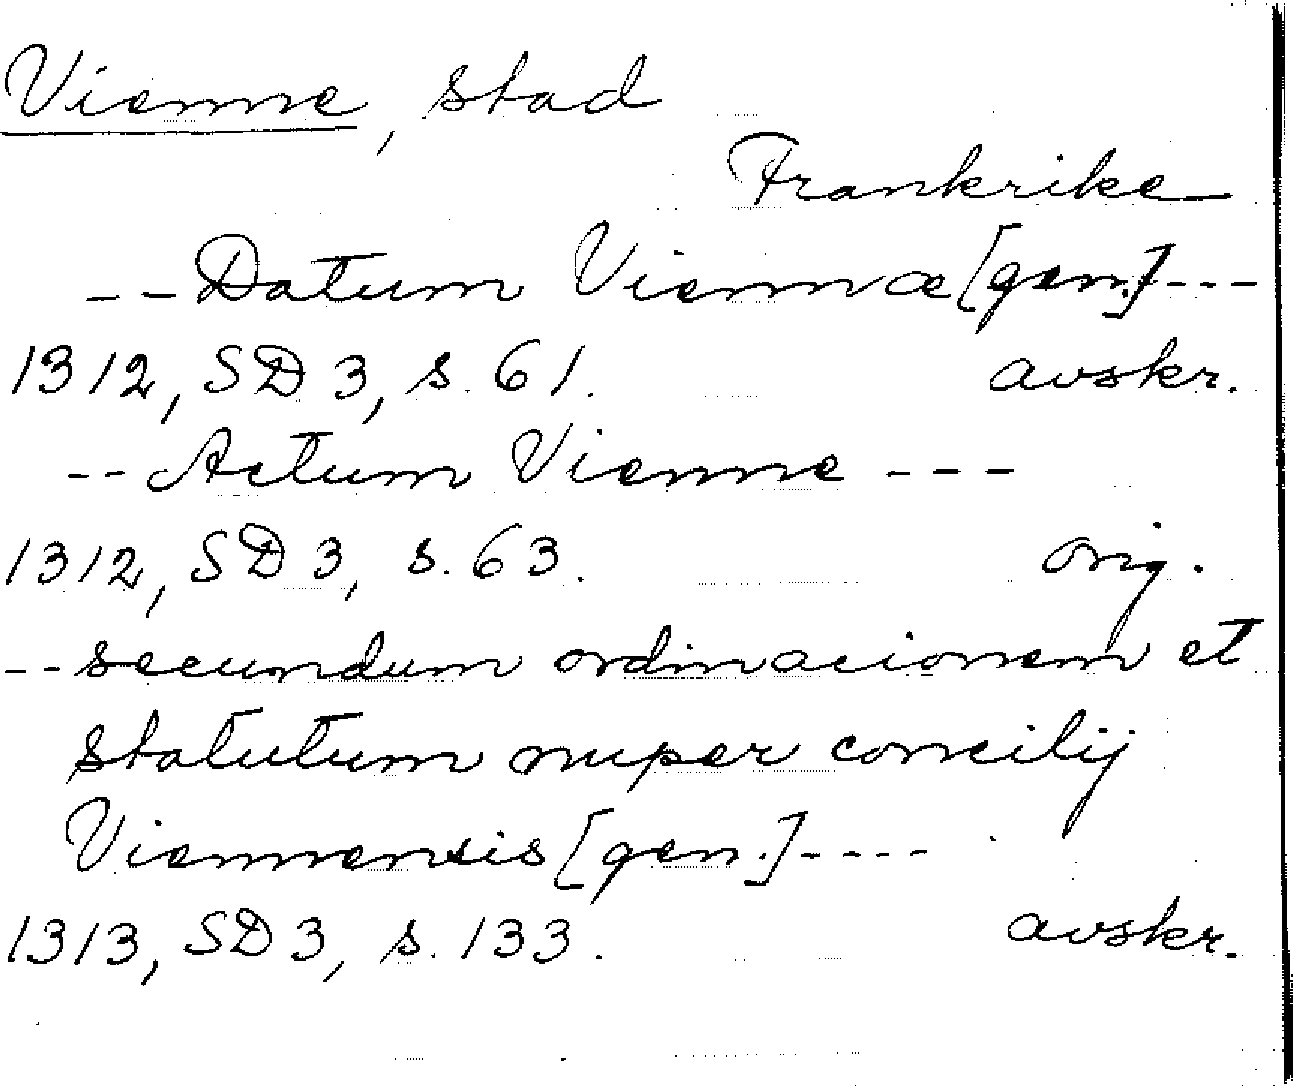 Vienne, stad
Frankrike
--Datum Viennæ [gen.]---
1312, SD 3, s. 61. avskr.
--Actum Vienne ---
1312, SD 3, s. 63. orig.
--secundum ordinacionem et
statutum nuper concilij
Viennensis [gen.]----
1313, SD 3, s. 133. avskr.